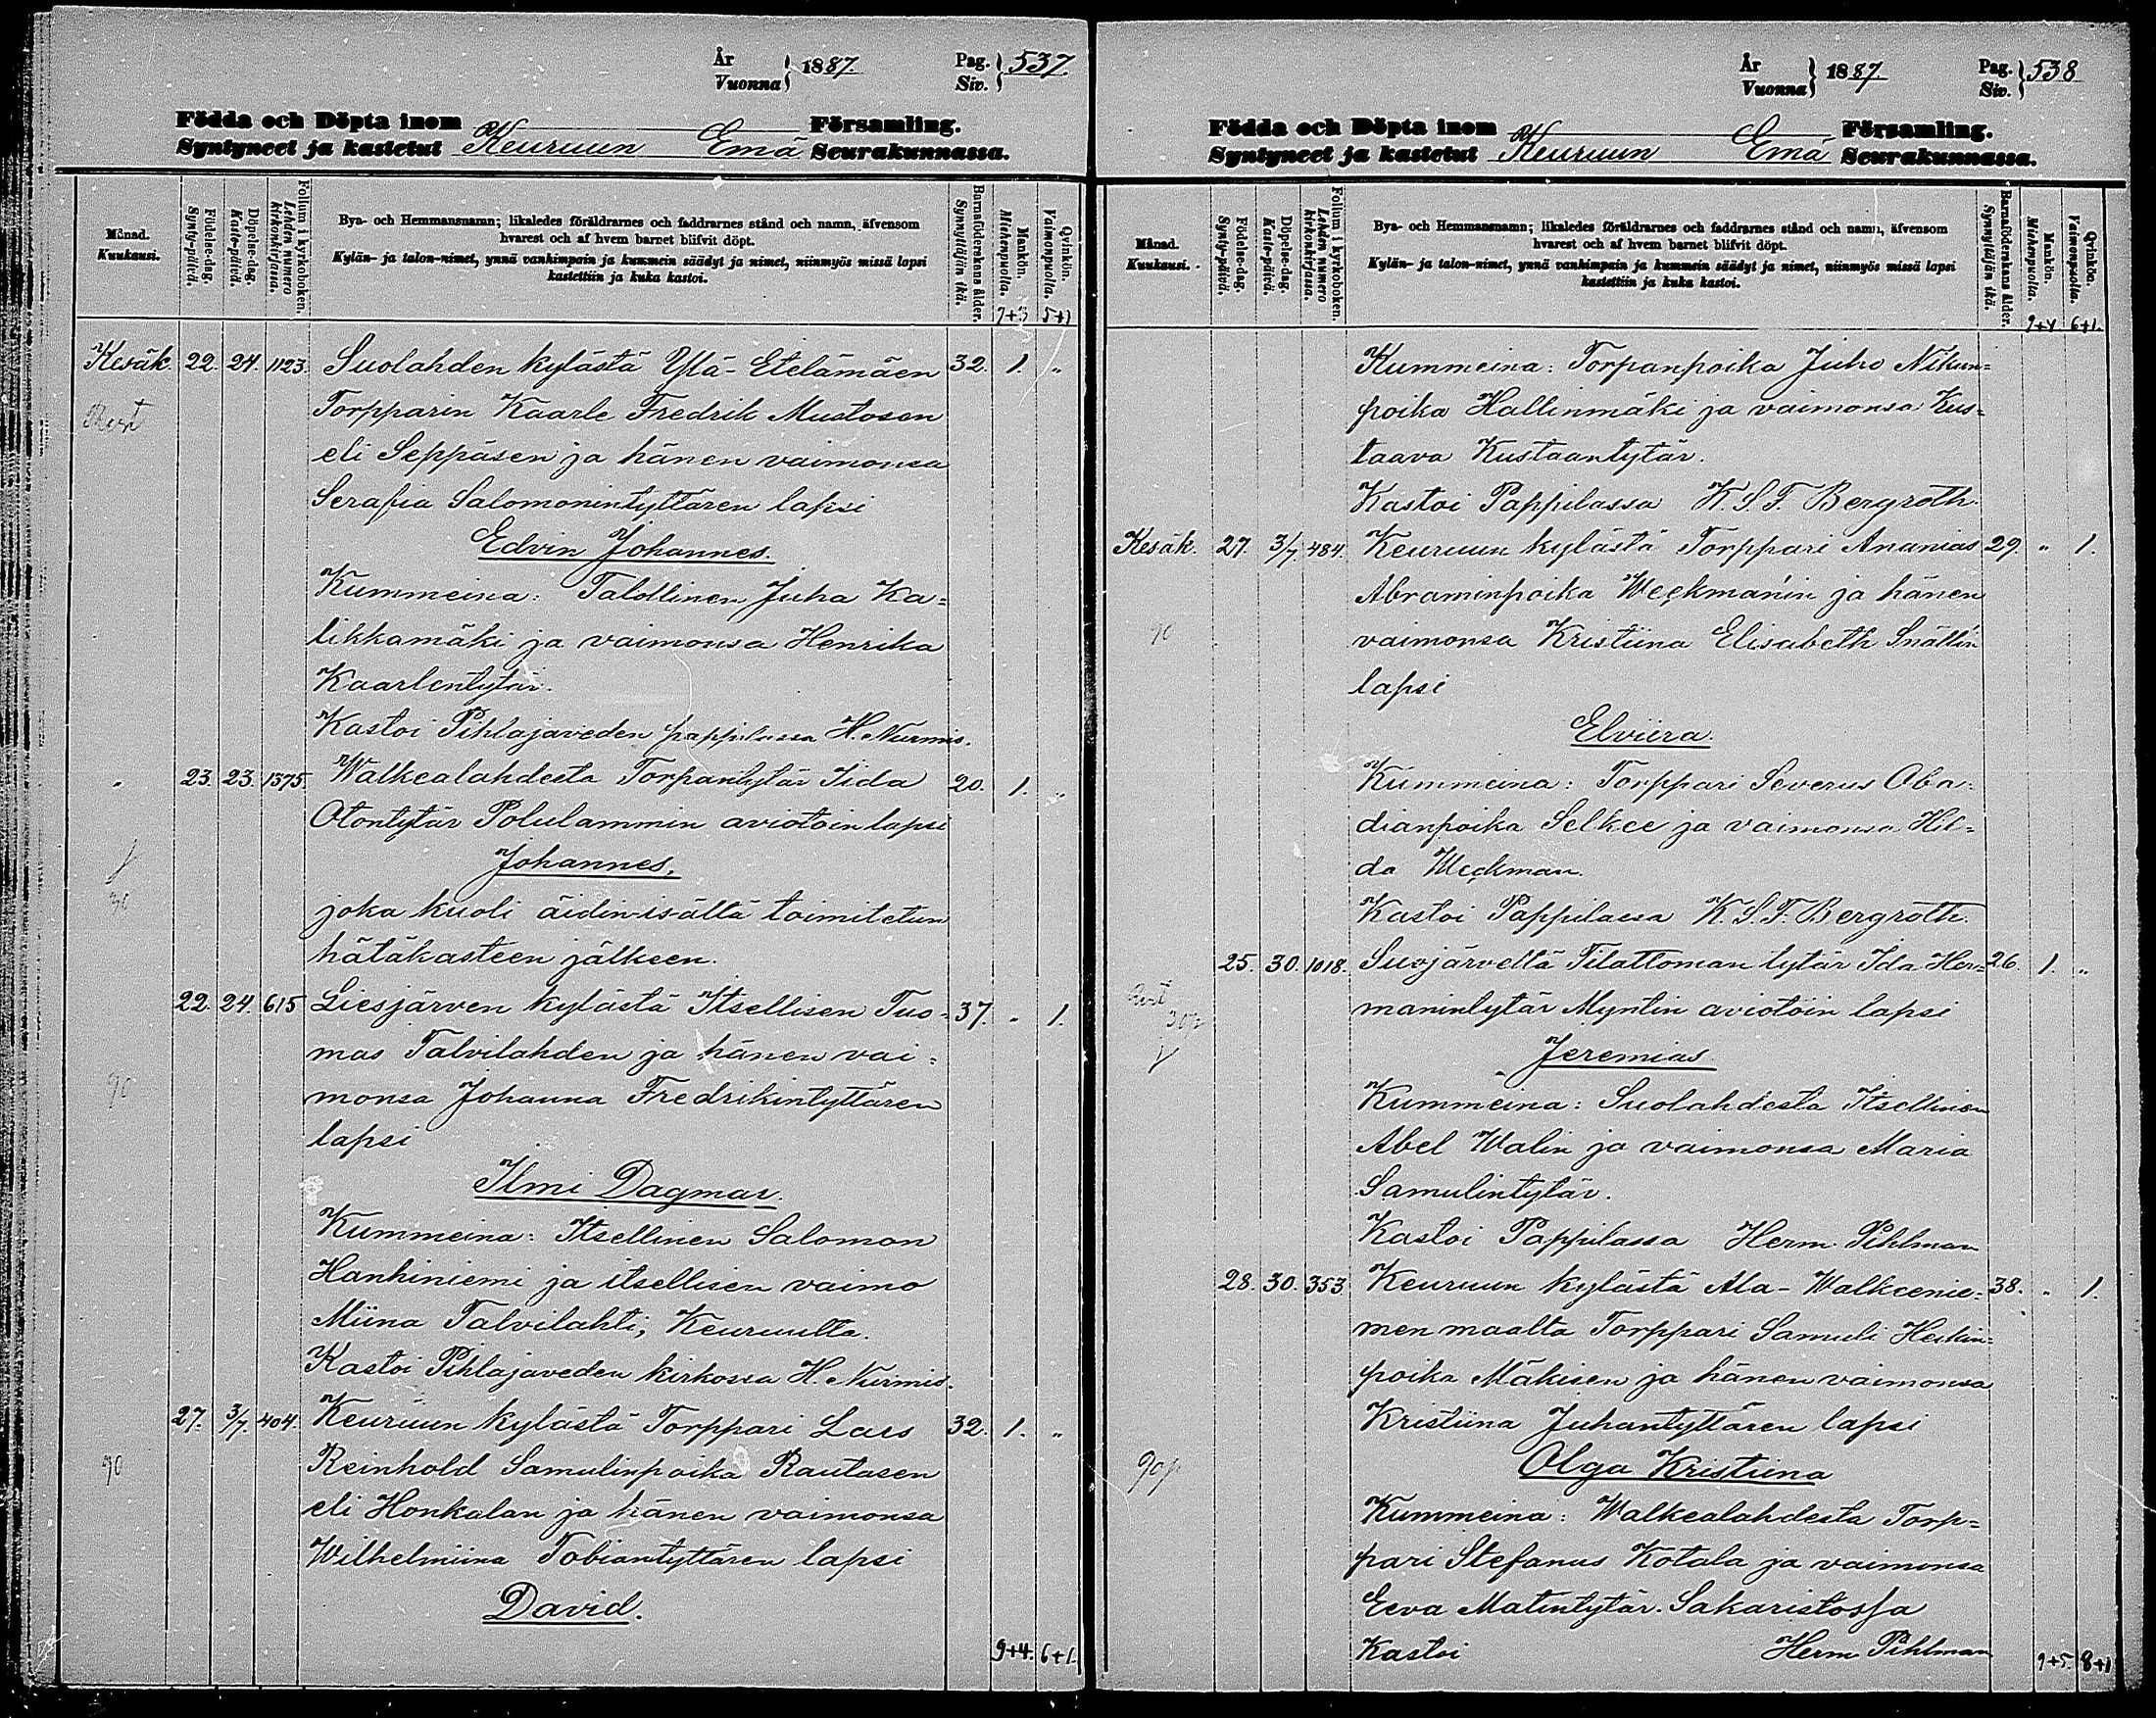 År
Vuonna } 1887.
Pag.
Siv. } 537.
Födda och Döpta inom Församling.
Syntyneet ja kastetut Keuruun Emä Seurakunnassa.
Månad.
Kuukausi.
Födelse-dag.
Synty-päivä.
Döpelse-dag.
Kaste-päivä.
Folium i kyrkoboken.
Lehden numero kirkonkirjassa.
Bya- och Hemmansnamn; likaledes föräldrarnes och faddrarnes stånd och namn, äfvensom
hvarest och af hvem barnet blifvit döpt.
Kylän- ja talon-nimet, ynnä vanhimpain ja kummein säädyt ja nimet, niinmyös missä lapsi
kastettiin ja kuka kastoi.
Barnaföderskans ålder.
Synnyttäjän ikä.
Mankön.
Miehenpuolia.
Qvinkön.
Vaimonpuolia.
9+3 5+1
Kesäk. 22. 24. 1123. Suolahden kylästä Ylä-Etelämäen 32. 1. "
Torpparin Kaarle Fredrik Mustosen
eli Seppäsen ja hänen vaimonsa
Serafia Salomonintyttären lapsi
Edvin Johannes.
Kummeina: Talollinen Juha Ka=
likkamäki ja vaimonsa Henrika
Kaarlentytär.
Kastoi Pihlajaveden pappilassa H. Nurmio.
" 23. 23. 1375. Walkealahdesta Torpantytär Iida 20. 1. "
Otontytär Polulammin aviotoin lapsi
Johannes,
joka kuoli äidin-isältä toimitetun
hätäkasteen jälkeen.
22. 24. 615 Liesjärven kylästä Itsellisen Tuo= 37. " 1.
mas Talvilahden ja hänen vai=
monsa Johanna Fredrikintyttären
90
lapsi
Ilmi Dagmar.
Kummeina: Itsellinen Salomon
Hanhiniemi ja itsellisen vaimo
Miina Talvilahti, Keuruulta.
Kastoi Pihlajaveden kirkossa H. Nurmio.
27. 3/7. 404. Keuruun kylästä Torppari Lars 32. 1. "
90 Reinhold Samulinpoika Rautasen
eli Honkalan ja hänen vaimonsa
Wilhelmiina Tobiantyttären lapsi
David.
9+4. 6+1.
År
Vuonna } 1887
Pag.
Siv. } 538
Födda och Döpta inom Församling.
Syntyneet ja kastetut Keuruun Emä Seurakunnassa.
Månad.
Kuukausi.
Födelse-dag.
Synty-päivä.
Döpelse-dag.
Kaste-päivä.
Folium i kyrkoboken.
Lehden numero kirkonkirjassa.
Bya- och Hemmansnamn; likaledes föräldrarnes och faddrarnes stånd och namn, äfvensom
hvarest och af hvem barnet blifvit döpt.
Kylän- ja talon-nimet, ynnä vanhimpain ja kummein säädyt ja nimet, niinmyös missä lapsi
kastettiin ja kuka kastoi.
Barnaföderskans ålder.
Synnyttäjän ikä.
Mankön.
Miehenpuolia.
Qvinkön.
Vaimonpuolia.
9+4 6+1.
Kummeina: Torpanpoika Juho Nikun=
poika Hallinmäki ja vaimonsa Kus=
taava Kustaantytär.
Kastoi Pappilassa K.S.F. Bergroth
Kesäk. 27. 3/7. 484. Keuruun kylästä Torppari Ananias 29. " 1.
Abraminpoika Weckman'in ja hänen
90 vaimonsa Kristiina Elisabeth Snällin
lapsi
Elviira.
Kummeina: Torppari Severus Oba=
dianpoika Selkee ja vaimonsa Hil=
da Weckman.
Kastoi Pappilassa K.S.F. Bergroth.
25. 30. 1018. Suojärveltä Tilattoman tytär Ida Her= 26. 1. "
manintytär Myntin aviotoin lapsi
Jeremias
Kummeina: Suolahdesta Itsellinen
Abel Walin ja vaimonsa Maria
Samulintytär.
Kastoi Pappilassa Herm. Pihlman
28. 30. 353. Keuruun kylästä Ala-Walkeenie= 38. " 1.
men maalta Torppari Samuli Heikin=
poika Mäkisen ja hänen vaimonsa
Kristiina Juhantyttären lapsi
90p Olga Kristiina
Kummeina: Walkealahdesta Torp=
pari Stefanus Kotala ja vaimonsa
Eeva Matintytär. Sakaristossa
Kastoi Herm. Pihlman
9+5. 8+1